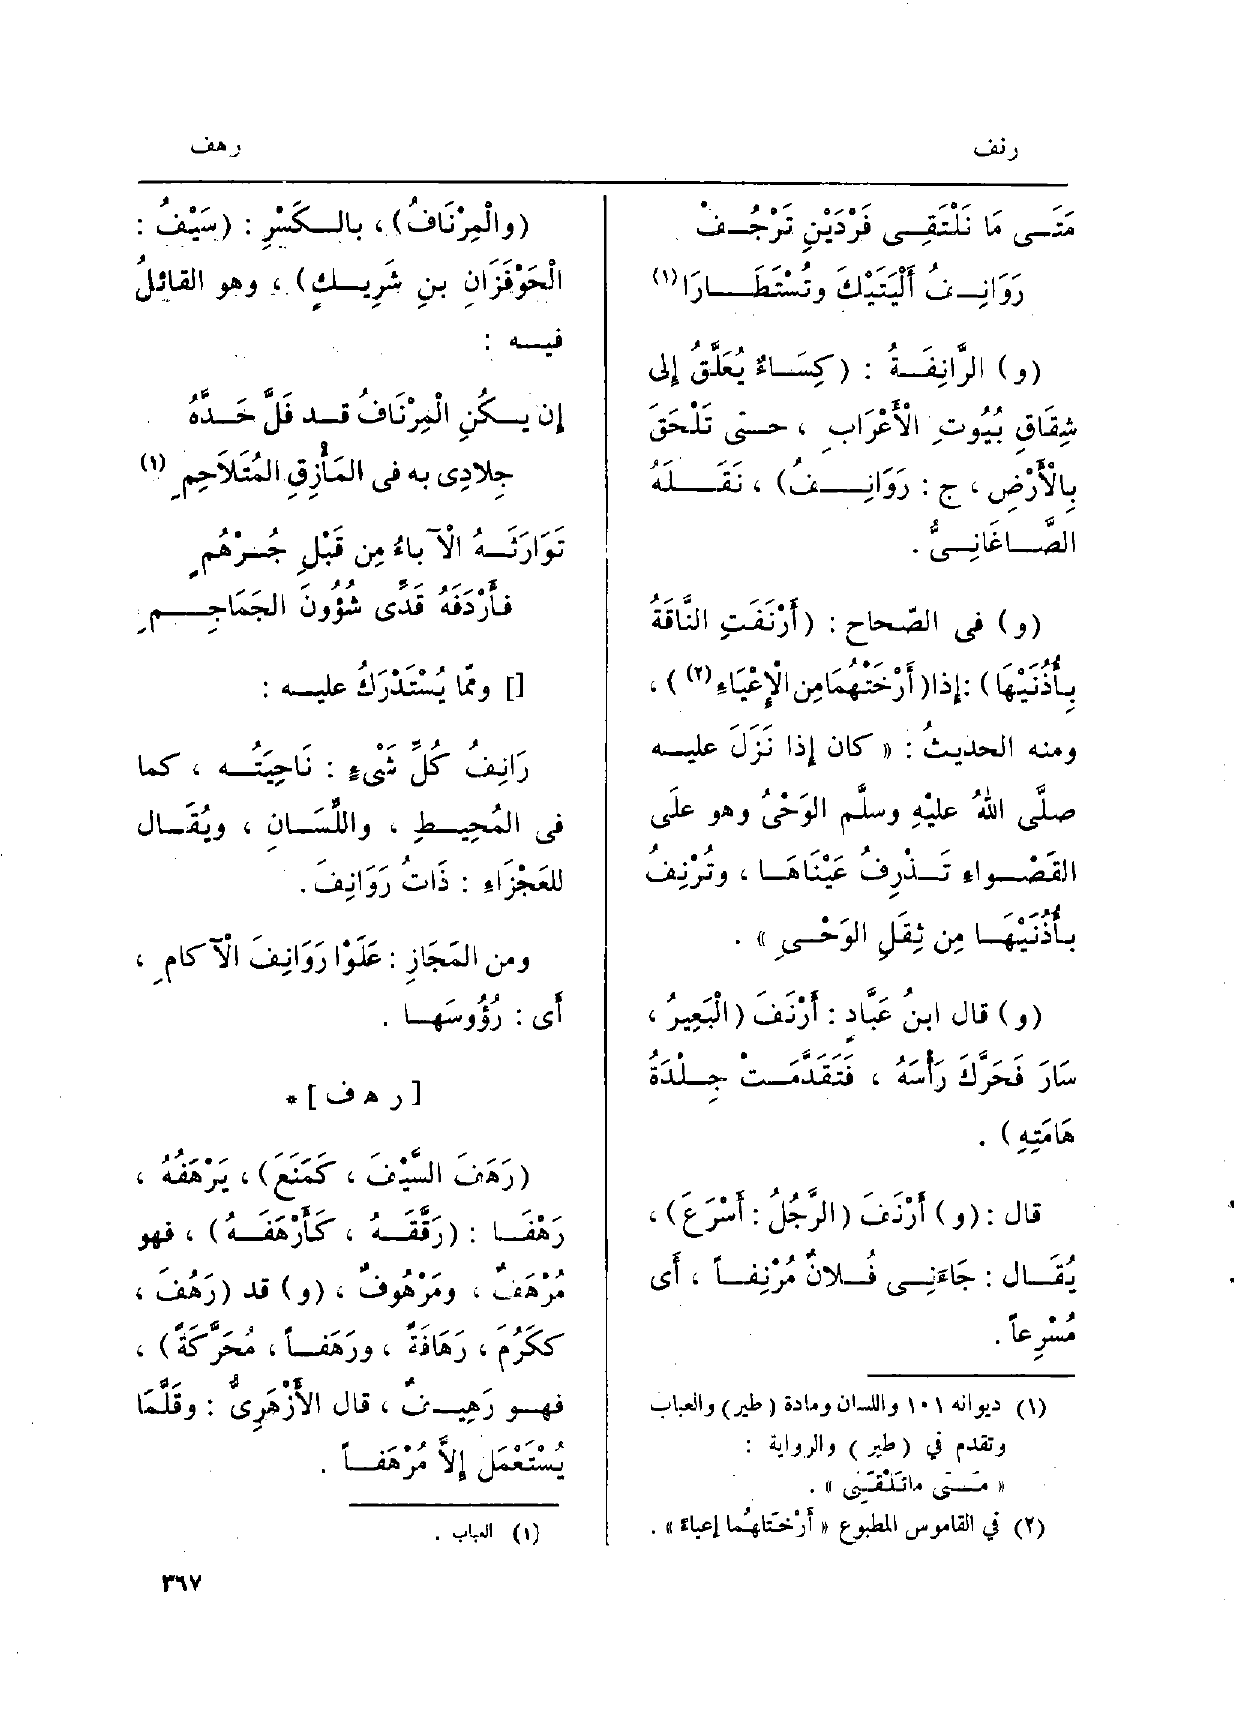 رنف
رهف
مَتَـى مَا نَلْتَقِـى فَرْدَيْنِ تَرْجُـفْ
رَوَانِـفُ أَلْيَتَيْكَ وتُسْتَطَـارَا (١)
(و) الرَّانِفَـةُ : (كِسَـاءٌ يُعَلَّقُ إلى
شِقَاقِ بُيُوتِ الْأَعْرَابِ ، حـتى تَلْحَقَ
بِالْأَرْضِ ، ج : رَوَانِـفُ) ، نَقَـلَهُ
الصَّـاغَانِـىُّ .
(و) فى الصّحاح : (أَرْنَفَتِ النَّاقَةُ
بِأُذُنَيْهَا) :إذا (أَرْخَتْهُمَا مِن الْإِعْيَاءِ (٢) ) ،
ومنه الحديثُ : « كان إذا نَزَلَ عليـه
صلَّى اللهُ عليْهِ وسلَّم الوَحْىُ وهو علَى
القَصْـواءِ تَـذْرِفُ عَيْنَاهَـا ، وتُرْنِفُ
بأُذُنَيْهَـا مِن ثِقَلِ الوَحْـىِ » .
(و) قال ابنُ عَبَّادٍ : أَرْنَفَ (الْبَعِيرُ ،
سَارَ فَحَرَّكَ رَأْسَهُ ، فَتَقَدَّمَـتْ جِـلْدَةُ
هَامَتِهِ) .
قال : (و) أَرْنَفَ (الرَّجُلُ : أَسْرَعَ) ،
يُقَـال : جَاءَنِـى فُـلانٌ مُرْنِفـاً ، أَى
مُسْرِعاً .
(١) ديوانه ١٠١ واللسان ومادة (طير) والعباب
وتقدم في (طير) والرواية :
« مَـتَى ماتَلْقَنِى » .
(٢) في القاموس المطبوع « أَرْخَتَاهُما إعياءً » .
(والْمِرْنَافُ) ، بالـكَسْرِ : (سَيْفُ :
الْحَوْفَزَانِ بنِ شَرِيـكٍ) ، وهو القائلُ
فيـه :
إن يـكُنِ الْمِرْنَافُ قـد فَلَّ حَـدَّهُ
جِلادِى به فى المَأْزِقِ المُتَلَاحِمِ (١)
تَوَارَثَـهُ الْآباءُ مِن قَبْلِ جُـرْهُمٍ
فأَرْدَفَهُ قَدِّى شُؤُونَ الجَمَاجِـمِ
[] وممّا يُسْتَدْرَكُ عليـه :
رَانِفُ كُلِّ شَىْءٍ : نَاحِيَتُـه ، كما
فى المُحِيـطِ ، واللِّسَـانِ ، ويُقَـال
للعَجْزَاءِ : ذَاتُ رَوَانِفَ .
ومن المَجَازِ : عَلَوْا رَوَانِفَ الْآكامِ ،
أَى : رُؤُوسَهـا .
[ ر ه ف ] *
(رَهَفَ السَّيْفَ ، كَمَنَعَ) ، يَرْهَفُهُ ،
رَهْفـا : (رَقَّقـهُ ، كَأَرْهَفَـهُ) ، فهو
مُرْهَفٌ ، ومَرْهُوفٌ ، (و) قد (رَهُفَ ،
ككَرُمَ ، رَهَافَةً ، ورَهَفـاً ، مُحَرَّكَةً) ،
فهـو رَهِيـفٌ ، قال الأَزْهَرِىُّ : وقَلَّمَا
يُسْتَعْمَل إلاَّ مُرْهَفـاً .
(١) العباب .
٣٦٧